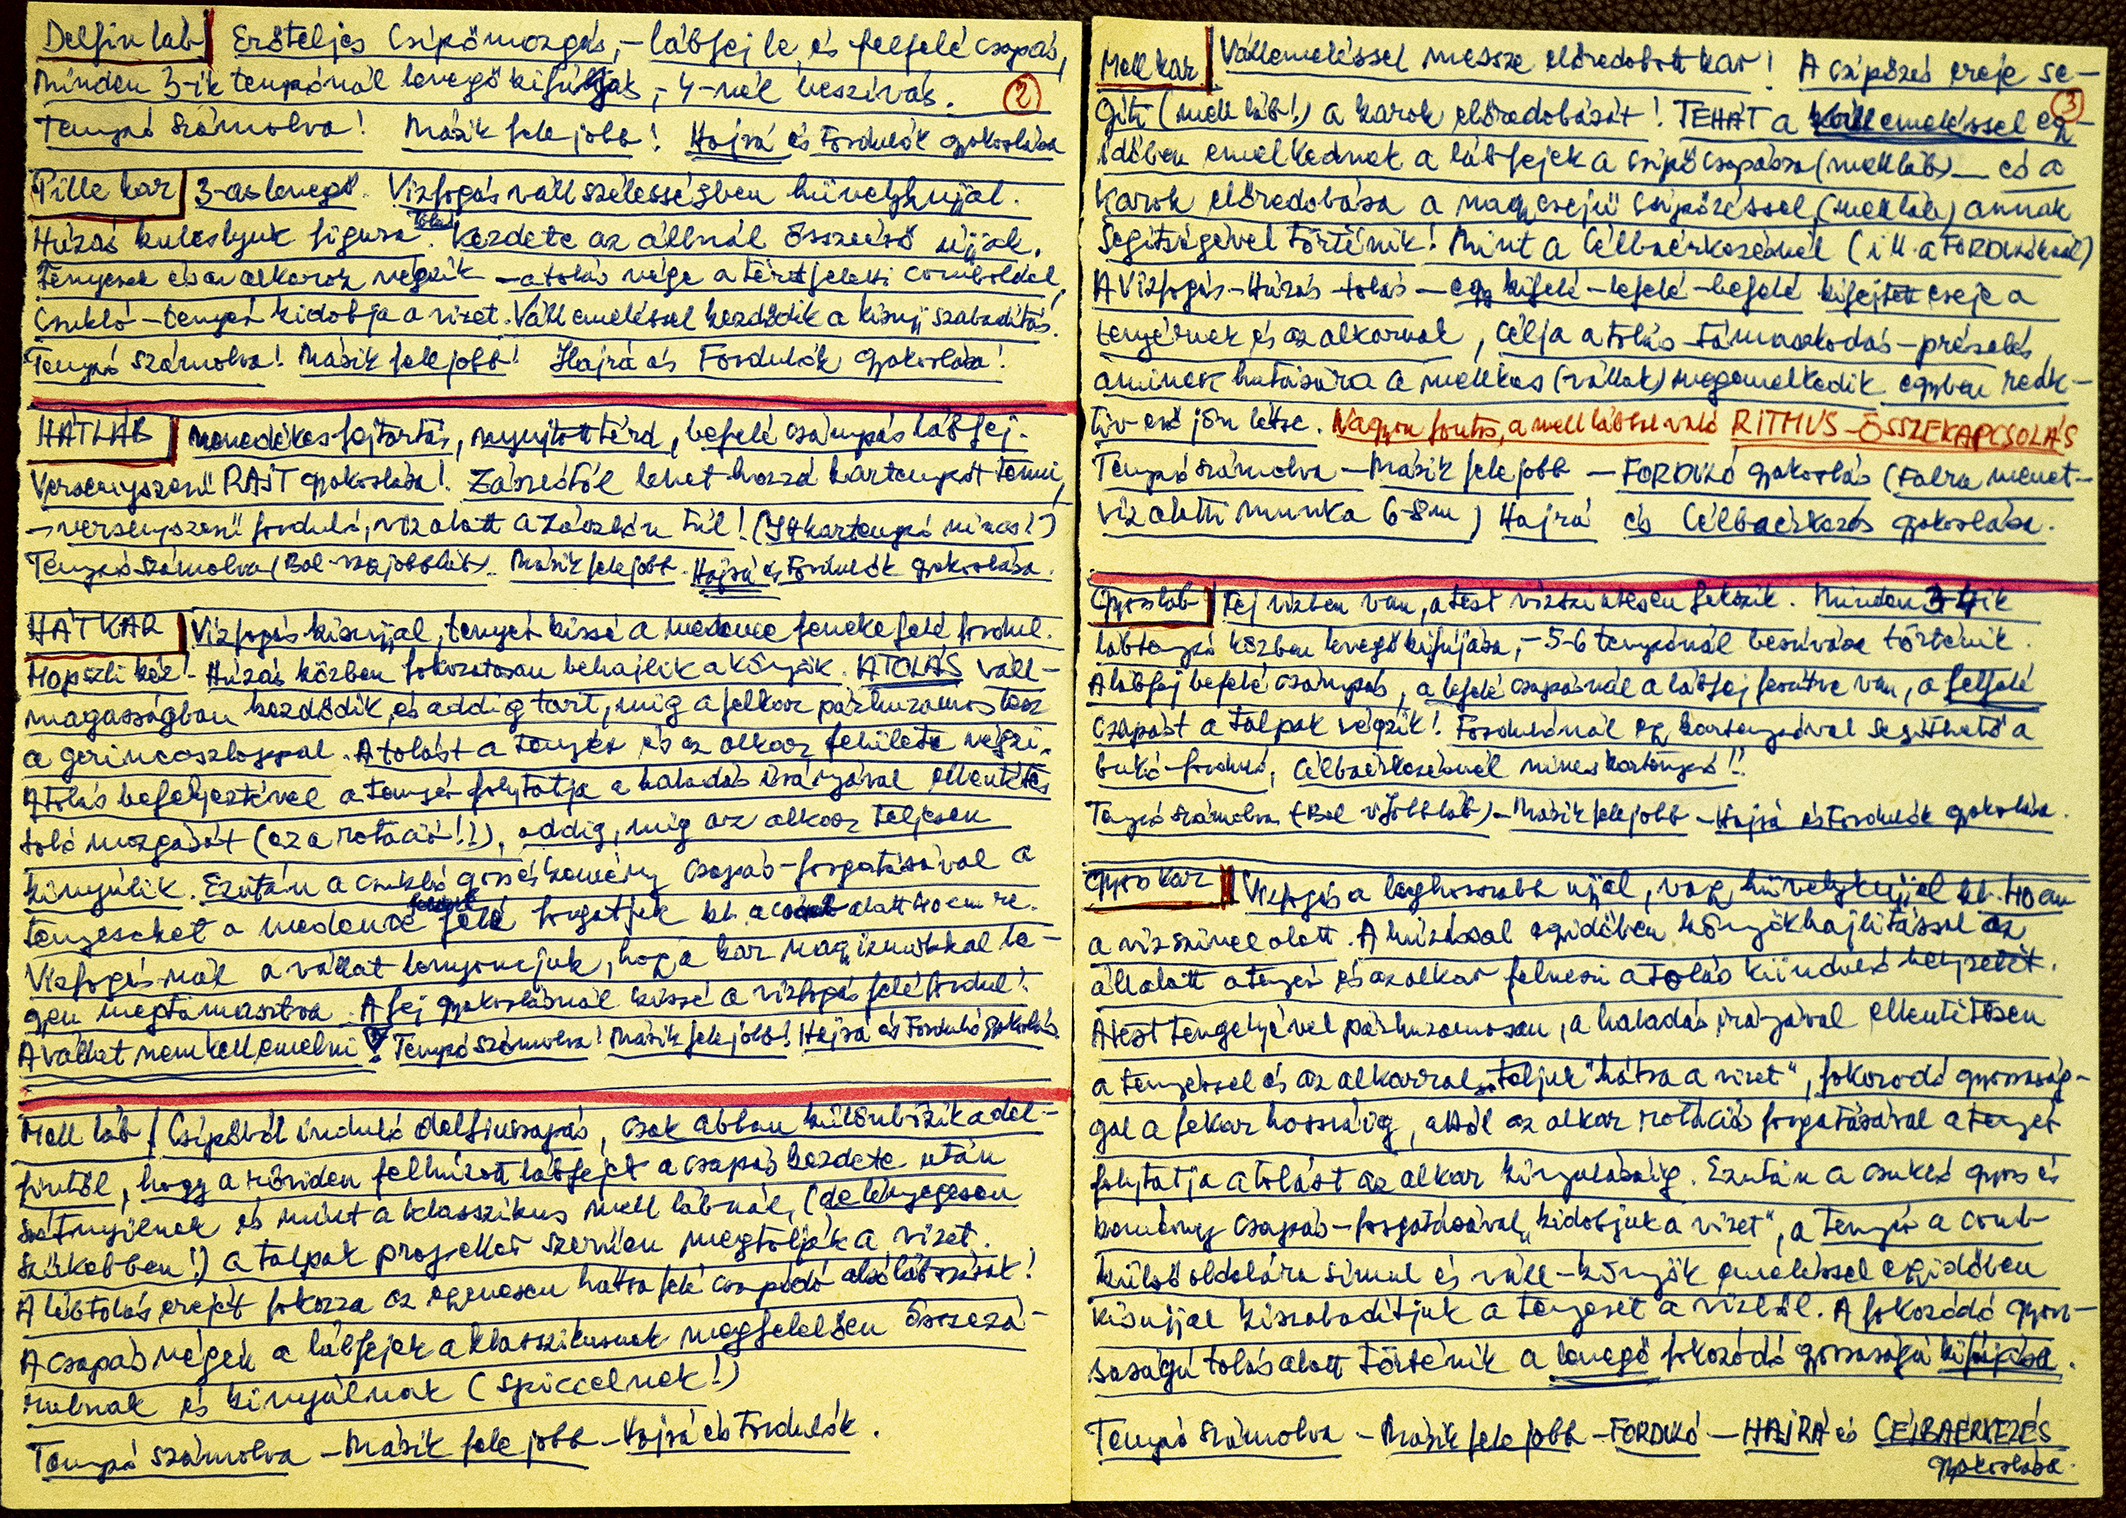 Delfin láb Erőteljes csípőmozgás, – lábfej le és felfelé csapás,
minden 3-ik tempónál levegő kifújás, – 4-nél beszívás.
②
Tempó számolva! Másik fele jobb! Hajrá és Fordulók gyakorlása
Pille kar 3-as levegő. Vízfogás vállszélességben hüvelykujjal.
Húzás kulcslyuk figura. Tolás Kezdete az állnál összeérő ujjak.
Tenyerek és az alkarok végzik – a tolás vége a térdfeletti comboldal,
Csukló – tenyér kidobja a vizet. Vállemeléssel kezdődik a kisujj szabadítás.
Tempó számolva! Másik fele jobb! Hajrá és Fordulók gyakorlása!
HÁTLÁB menedékes fejtartás, nyujtott térd, befelé csámpás lábfej.
Versenyszerű RAJT gyakorlása! Zászlótól lehet hozzá kartempót tenni,
→ versenyszerű forduló, víz alatt a zászlón túl! (Itt kartempó nincs!)
Tempó számolva (Bal vagy jobbláb). Másik fele jobb. Hajrá és Fordulók gyakorlása.
HÁT KAR Vízfogás kisujjal, tenyér kissé a medence feneke felé fordul.
Húzás közben fokozatosan behajlik a könyök. A TOLÁS váll-
magasságban kezdődik, és addig tart, míg a felkar párhuzamos lesz
a gerincoszloppal. A tolást a tenyér és az alkar felülete végzi.
A tolás befejeztével a tenyér folytatja a haladás irányával ellentétes
toló mozgását (ez a rotáció!!), addig, míg az alkar teljesen
kinyúlik. Ezután a csukló gyors és kemény csapás-forgatásával a
tenyereket a medence felé forgatjuk kb. a comb alatt 40 cm re.
Vízfogásnál a vállat lenyomjuk, hogy a kar nagyizmokkal le-
gyen megtámasztva. A fej gyakorlásnál kissé a vízfogás felé fordul!
A vállat nem kell emelni! Tempó számolva! Másik fele jobb! Hajrá és Forduló gyakorlás
Mell láb / Csípőből induló delfincsapás, csak abban különbözik a del-
fintől, hogy a röviden felhúzott lábfejek a csapás kezdete után
szétnyílnak és mint a klasszikus mell lábnál, (de lényegesen
szűkebben!) a talpak propeller szerűen megtolják a vizet.
A lábtolás erejét fokozza az egyenesen hátra felé csapódó alsólábszárak!
A csapás végén a lábfejek a klasszikusnak megfelelően összezá-
rulnak és kinyúlnak (spiccelnek!)
Tempó számolva – Másik fele jobb – Hajrá és Fordulók.
Mell kar Vállemeléssel messze előredobott kar! A csípőzés ereje se-
③
gíti (mell láb!) a karok előredobását! TEHÁT a vállemeléssel egy
időben emelkednek a lábfejek a csípőcsapásra (mell láb) – és a
Karok előredobása a nagy erejű csípőzéssel (mell láb) annak
segítségével történik! Mint a célbaérkezésnél (ill. a FORDULÓKnál)
A Vízfogás – Húzás – tolás – egy kifelé – lefelé – befelé kifejtett ereje a
tenyérnek és az alkarnak, célja a tolás – támaszkodás – préselés,
aminek hatására a mellkas (vállak) megemelkedik egyben reak-
tív erő jön létre. Nagyon fontos, a mell lábbal való RITMUS-ÖSSZEKAPCSOLÁS
Tempó számolva – Másik fele jobb – FORDULÓ gyakorlás (Falra menet-
víz alatti munka 6-8 m) Hajrá és Célbaérkezés gyakorlása.
Gyorsláb Fej vízben van, a test vízszintesen fekszik. Minden 3-4 ik
lábtempó közben levegő kifújása, – 5-6 tempónál beszívása történik.
A lábfej befelé csámpás, a lefelé csapásnál a lábfej feszítve van, a felfelé
csapást a talpak végzik! Fordulónál egy kartempóval segíthető a
bukó-forduló, Célbaérkezésnél nincs kartempó!!
Tempó számolva (Bal v. Jobbláb) – Másik fele jobb – Hajrá és Fordulók gyakorlása.
Gyors kar Vízfogás a leghosszabb ujjal, vagy hüvelykujjal kb. 40 cm
a víz színe alatt. A húzással egyidőben könyökhajlítással az
áll alatt a tenyér és az alkar felveszi a tolás kiinduló helyzetét.
A test tengelyével párhuzamosan, a haladás irányával ellentétesen
a tenyérrel és az alkarral „toljuk "hátra a vizet", fokozódó gyorsaság-
gal a felkar hosszáig, attól az alkar rotációs forgatásával a tenyér
folytatja a tolást az alkar kinyulásáig. Ezután a csukló gyors és
kemény csapás-forgatásával „kidobjuk a vizet", a tenyér a comb
külső oldalára simul és váll-könyök emeléssel egyidőben
kisujjal kiszabadítjuk a tenyeret a vízből. A fokozódó gyor-
saságú tolás alatt történik a levegő fokozódó gyorsaságú kifújása.
Tempó számolva – Másik fele jobb – FORDULÓ – HAJRÁ és CÉLBAÉRKEZÉS
gyakorlása.